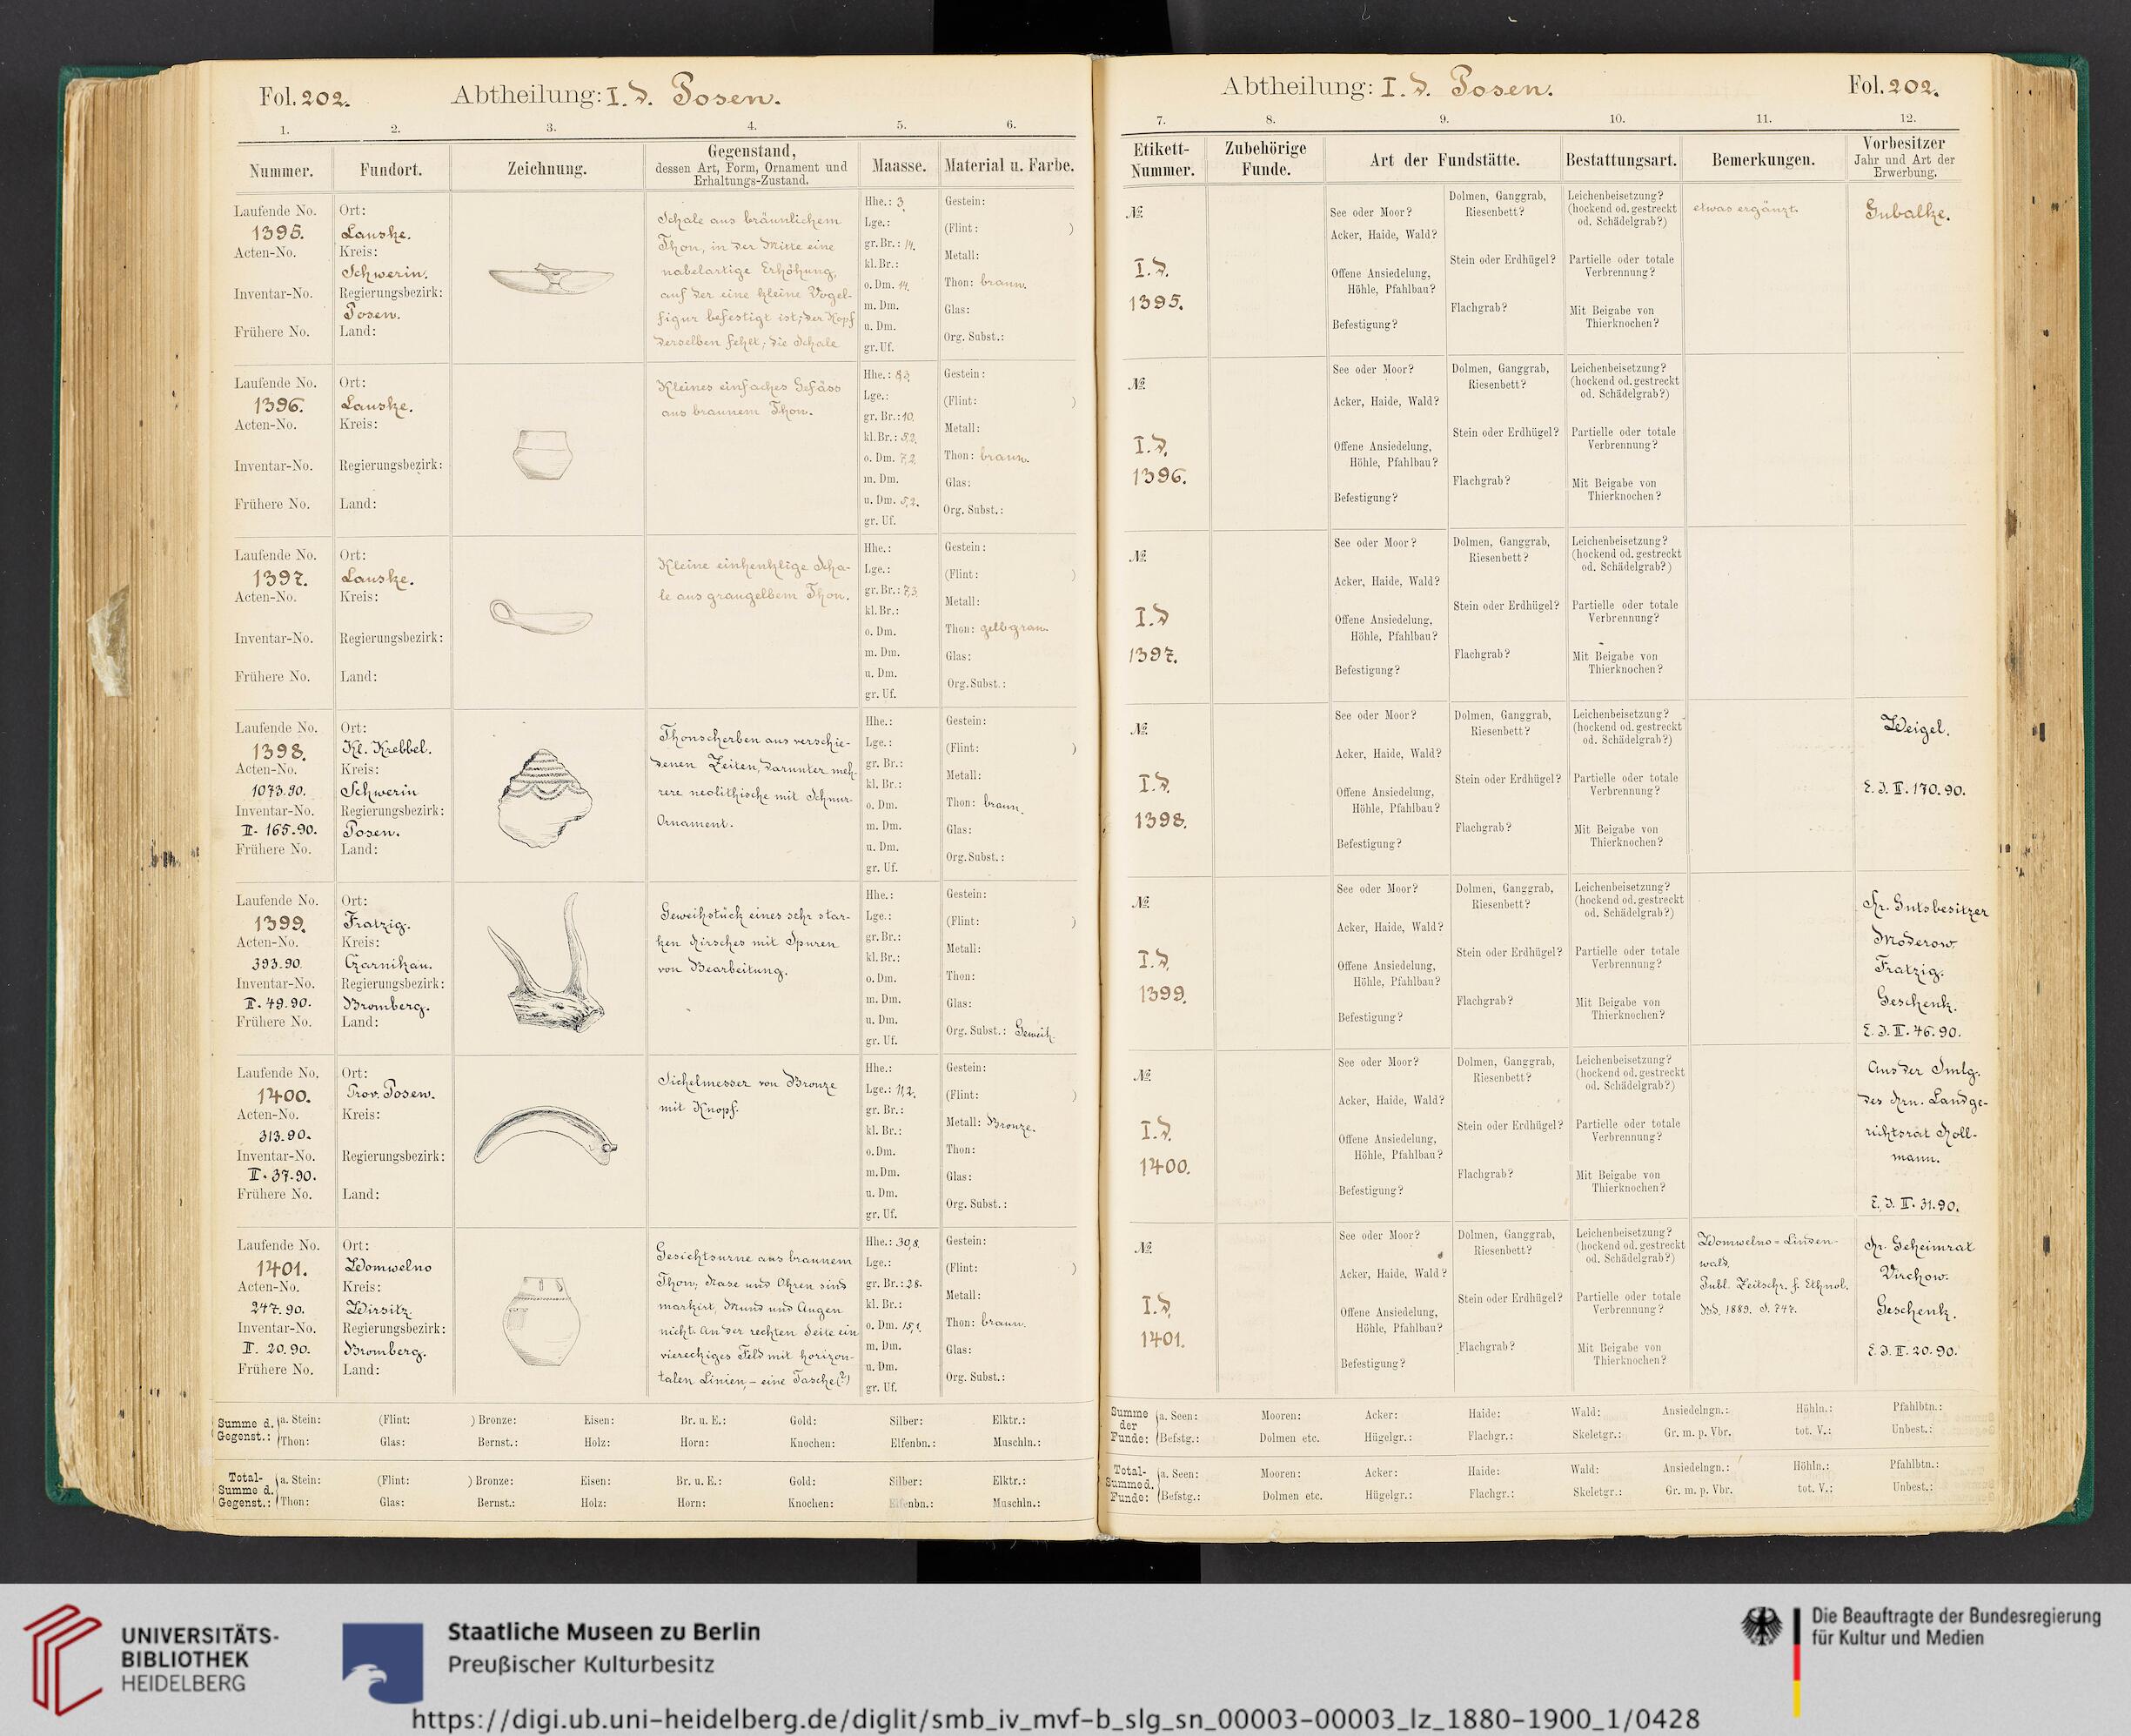 Fol. 202.
Abtheilung: I. d. Posen.
1. 2. 3. 4. 5. 6.
Nummer. Fundort. Zeichnung. Gegenstand, dessen Art, Form, Ornament und Erhaltungs-Zustand. Maasse. Material u. Farbe.
Laufende No. 1395.
Acten-No.
Inventar-No.
Frühere No.
Ort: Lauske.
Kreis: Schwerin.
Regierungsbezirk: Posen.
Land:
Schale aus bräunlichem
Thon, in der Mitte eine
nabelartige Erhöhung,
auf der eine kleine Vogel-
figur befestigt ist; der Kopf
derselben fehlt; die Schale
Hhe.: 3.
Lge.:
gr. Br.: 14.
kl. Br.:
o. Dm. 14.
m. Dm.
u. Dm.
gr. Uf.
Gestein:
(Flint: )
Metall:
Thon: braun.
Glas:
Org. Subst.:
Laufende No. 1396.
Acten-No.
Inventar-No.
Frühere No.
Ort: Lauske.
Kreis:
Regierungsbezirk:
Land:
Kleines einfaches Gefäss
aus braunem Thon.
Hhe.: 8,3.
Lge.:
gr. Br.: 10.
kl. Br.: 5,2.
o. Dm. 7,2.
m. Dm.
u. Dm. 5,2.
gr. Uf.
Gestein:
(Flint: )
Metall:
Thon: braun.
Glas:
Org. Subst.:
Laufende No. 1397.
Acten-No.
Inventar-No.
Frühere No.
Ort: Lauske.
Kreis:
Regierungsbezirk:
Land:
Kleine einhenklige Scha-
le aus graugelbem Thon.
Hhe.:
Lge.:
gr. Br.: 7,3.
kl. Br.:
o. Dm.
m. Dm.
u. Dm.
gr. Uf.
Gestein:
(Flint: )
Metall:
Thon: gelbgrau.
Glas:
Org. Subst.:
Laufende No. 1398.
Acten-No. 1073.90.
Inventar-No. II. 165.90.
Frühere No.
Ort: Kl. Krebbel.
Kreis: Schwerin
Regierungsbezirk: Posen.
Land:
Thonscherben aus verschie-
denen Zeiten, darunter meh-
rere neolithische mit Schnur-
Ornament.
Hhe.:
Lge.:
gr. Br.:
kl. Br.:
o. Dm.
m. Dm.
u. Dm.
gr. Uf.
Gestein:
(Flint: )
Metall:
Thon: braun.
Glas:
Org. Subst.:
Laufende No. 1399.
Acten-No. 393.90.
Inventar-No. II. 49.90.
Frühere No.
Ort: Fratzig.
Kreis: Czarnikau.
Regierungsbezirk: Bromberg.
Land:
Geweihstück eines sehr star-
ken Hirsches mit Spuren
von Bearbeitung.
Hhe.:
Lge.:
gr. Br.:
kl. Br.:
o. Dm.
m. Dm.
u. Dm.
gr. Uf.
Gestein:
(Flint: )
Metall:
Thon:
Glas:
Org. Subst.: Geweih.
Laufende No. 1400.
Acten-No. 313.90.
Inventar-No. II. 37.90.
Frühere No.
Ort: Prov. Posen.
Kreis:
Regierungsbezirk:
Land:
Sichelmesser von Bronze
mit Knopf.
Hhe.:
Lge.: 11,2.
gr. Br.:
kl. Br.:
o. Dm.
m. Dm.
u. Dm.
gr. Uf.
Gestein:
(Flint: )
Metall: Bronze.
Thon:
Glas:
Org. Subst.:
Laufende No. 1401.
Acten-No. 247.90.
Inventar-No. II. 20.90.
Frühere No.
Ort: Womwelno
Kreis: Wirsitz.
Regierungsbezirk: Bromberg.
Land:
Gesichtsurne aus braunem
Thon; Nase und Ohren sind
markirt, Mund und Augen
nicht. An der rechten Seite ein
viereckiges Feld mit horizon-
talen Linien, – eine Tasche (?)
Hhe.: 30,8.
Lge.:
gr. Br.: 28.
kl. Br.:
o. Dm. 15,1.
m. Dm.
u. Dm.
gr. Uf.
Gestein:
(Flint: )
Metall:
Thon: braun.
Glas:
Org. Subst.:
Summe d. Gegenst.: a. Stein: (Flint: ) Bronze: Eisen: Br. u. E.: Gold: Silber: Elktr.:
Thon: Glas: Bernst.: Holz: Horn: Knochen: Elfenbn.: Muschln.:
Total-Summe d. Gegenst.: a. Stein: (Flint: ) Bronze: Eisen: Br. u. E.: Gold: Silber: Elktr.:
Thon: Glas: Bernst.: Holz: Horn: Knochen: Elfenbn.: Muschln.:
Abtheilung: I. d. Posen.
Fol. 202.
7. 8. 9. 10. 11. 12.
Etikett-Nummer. Zubehörige Funde. Art der Fundstätte. Bestattungsart. Bemerkungen. Vorbesitzer Jahr und Art der Erwerbung.
№ I. d. 1395.
See oder Moor?
Acker, Haide, Wald?
Offene Ansiedelung, Höhle, Pfahlbau?
Befestigung?
Dolmen, Ganggrab, Riesenbett?
Stein oder Erdhügel?
Flachgrab?
Leichenbeisetzung? (hockend od. gestreckt od. Schädelgrab?)
Partielle oder totale Verbrennung?
Mit Beigabe von Thierknochen?
etwas ergänzt.
Gubalke.
№ I. d. 1396.
See oder Moor?
Acker, Haide, Wald?
Offene Ansiedelung, Höhle, Pfahlbau?
Befestigung?
Dolmen, Ganggrab, Riesenbett?
Stein oder Erdhügel?
Flachgrab?
Leichenbeisetzung? (hockend od. gestreckt od. Schädelgrab?)
Partielle oder totale Verbrennung?
Mit Beigabe von Thierknochen?
№ I. d 1397.
See oder Moor?
Acker, Haide, Wald?
Offene Ansiedelung, Höhle, Pfahlbau?
Befestigung?
Dolmen, Ganggrab, Riesenbett?
Stein oder Erdhügel?
Flachgrab?
Leichenbeisetzung? (hockend od. gestreckt od. Schädelgrab?)
Partielle oder totale Verbrennung?
Mit Beigabe von Thierknochen?
№ I. d. 1398.
See oder Moor?
Acker, Haide, Wald?
Offene Ansiedelung, Höhle, Pfahlbau?
Befestigung?
Dolmen, Ganggrab, Riesenbett?
Stein oder Erdhügel?
Flachgrab?
Leichenbeisetzung? (hockend od. gestreckt od. Schädelgrab?)
Partielle oder totale Verbrennung?
Mit Beigabe von Thierknochen?
Weigel.
E. J. II. 170. 90.
№ I. d. 1399.
See oder Moor?
Acker, Haide, Wald?
Offene Ansiedelung, Höhle, Pfahlbau?
Befestigung?
Dolmen, Ganggrab, Riesenbett?
Stein oder Erdhügel?
Flachgrab?
Leichenbeisetzung? (hockend od. gestreckt od. Schädelgrab?)
Partielle oder totale Verbrennung?
Mit Beigabe von Thierknochen?
Hr. Gutsbesitzer
Moderow.
Fratzig.
Geschenk.
E. J. II. 46. 90.
№ I. d. 1400.
See oder Moor?
Acker, Haide, Wald?
Offene Ansiedelung, Höhle, Pfahlbau?
Befestigung?
Dolmen, Ganggrab, Riesenbett?
Stein oder Erdhügel?
Flachgrab?
Leichenbeisetzung? (hockend od. gestreckt od. Schädelgrab?)
Partielle oder totale Verbrennung?
Mit Beigabe von Thierknochen?
Aus der Smlg.
des Hrn. Landge-
richtsrat Holl-
mann.
E. J. II. 31. 90.
№ I. d. 1401.
See oder Moor?
Acker, Haide, Wald?
Offene Ansiedelung, Höhle, Pfahlbau?
Befestigung?
Dolmen, Ganggrab, Riesenbett?
Stein oder Erdhügel?
Flachgrab?
Leichenbeisetzung? (hockend od. gestreckt od. Schädelgrab?)
Partielle oder totale Verbrennung?
Mit Beigabe von Thierknochen?
Womwelno = Linden-
wald.
Publ. Zeitschr. f. Ethnol.
Bd. 1889. S. 747.
Hr. Geheimrat
Virchow.
Geschenk.
E. J. II. 20. 90.
Summe der Funde: a. Seen: Mooren: Acker: Haide: Wald: Ansiedelngn.: Höhln.: Pfahlbtn.:
Befstg.: Dolmen etc. Hügelgr.: Flachgr.: Skeletgr.: Gr. m. p. Vbr. tot. V.: Unbest.:
Total-Summe d. Funde: a. Seen: Mooren: Acker: Haide: Wald: Ansiedelngn.: Höhln.: Pfahlbtn.:
Befstg.: Dolmen etc. Hügelgr.: Flachgr.: Skeletgr.: Gr. m. p. Vbr. tot. V.: Unbest.:
UNIVERSITÄTS-
BIBLIOTHEK
HEIDELBERG
Staatliche Museen zu Berlin
Preußischer Kulturbesitz
Die Beauftragte der Bundesregierung
für Kultur und Medien
https://digi.ub.uni-heidelberg.de/diglit/smb_iv_mvf-b_slg_sn_00003-00003_lz_1880-1900_1/0428